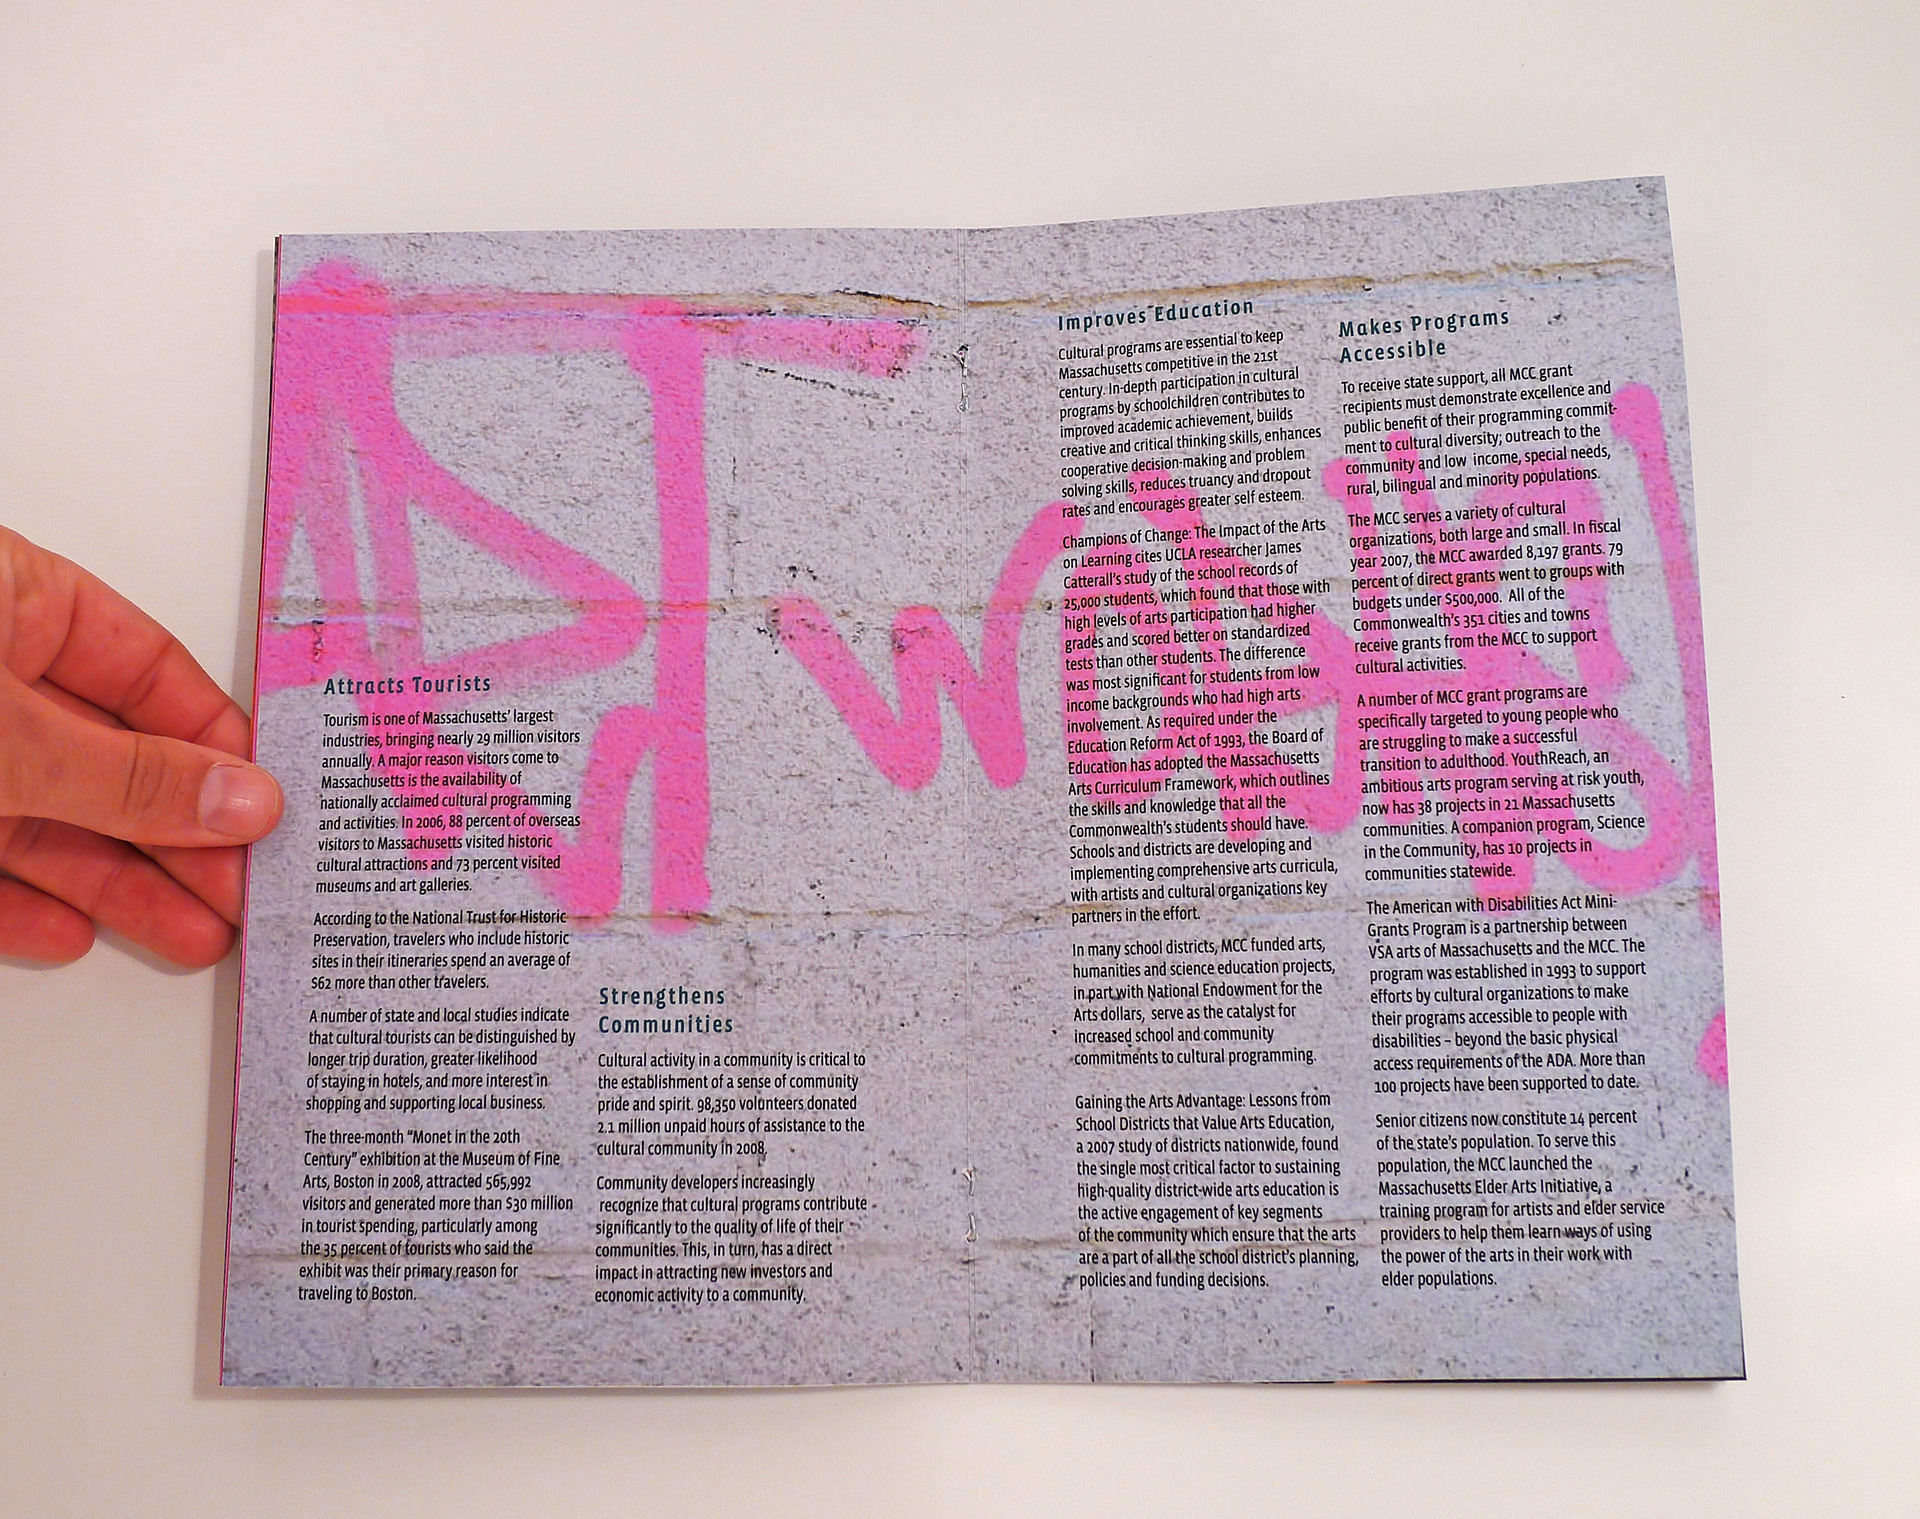 Attracts Tourists
Tourism is one of Massachusetts' largest
industries, bringing nearly 29 million visitors
annually. A major reason visitors come to
Massachusetts is the availability of
nationally acclaimed cultural programming
and activities. In 2006, 88 percent of overseas
visitors to Massachusetts visited historic
cultural attractions and 73 percent visited
museums and art galleries.
According to the National Trust for Historic
Preservation, travelers who include historic
sites in their itineraries spend an average of
$62 more than other travelers.
A number of state and local studies indicate
that cultural tourists can be distinguished by
longer trip duration, greater likelihood
of staying in hotels, and more interest in
shopping and supporting local business.
The three-month “Monet in the 20th
Century” exhibition at the Museum of Fine
Arts, Boston in 2008, attracted 565,992
visitors and generated more than $30 million
in tourist spending, particularly among
the 35 percent of tourists who said the
exhibit was their primary reason for
traveling to Boston.
Strengthens
Communities
Cultural activity in a community is critical to
the establishment of a sense of community
pride and spirit. 98,350 volunteers donated
2.1 million unpaid hours of assistance to the
cultural community in 2008.
Community developers increasingly
recognize that cultural programs contribute
significantly to the quality of life of their
communities. This, in turn, has a direct
impact in attracting new investors and
economic activity to a community.
Improves Education
Cultural programs are essential to keep
Massachusetts competitive in the 21st
century. In-depth participation in cultural
programs by schoolchildren contributes to
improved academic achievement, builds
creative and critical thinking skills, enhances
cooperative decision-making and problem
solving skills, reduces truancy and dropout
rates and encourages greater self esteem.
Champions of Change: The Impact of the Arts
on Learning cites UCLA researcher James
Catterall's study of the school records of
25,000 students, which found that those with
high levels of arts participation had higher
grades and scored better on standardized
tests than other students. The difference
was most significant for students from low
income backgrounds who had high arts
involvement. As required under the
Education Reform Act of 1993, the Board of
Education has adopted the Massachusetts
Arts Curriculum Framework, which outlines
the skills and knowledge that all the
Commonwealth's students should have.
Schools and districts are developing and
implementing comprehensive arts curricula,
with artists and cultural organizations key
partners in the effort.
In many school districts, MCC funded arts,
humanities and science education projects,
in part with National Endowment for the
Arts dollars, serve as the catalyst for
increased school and community
commitments to cultural programming.
Gaining the Arts Advantage: Lessons from
School Districts that Value Arts Education,
a 2007 study of districts nationwide, found
the single most critical factor to sustaining
high-quality district-wide arts education is
the active engagement of key segments
of the community which ensure that the arts
are a part of all the school district's planning,
policies and funding decisions.
Makes Programs
Accessible
To receive state support, all MCC grant
recipients must demonstrate excellence and
public benefit of their programming commit-
ment to cultural diversity; outreach to the
community and low income, special needs,
rural, bilingual and minority populations.
The MCC serves a variety of cultural
organizations, both large and small. In fiscal
year 2007, the MCC awarded 8,197 grants. 79
percent of direct grants went to groups with
budgets under $500,000. All of the
Commonwealth's 351 cities and towns
receive grants from the MCC to support
cultural activities.
A number of MCC grant programs are
specifically targeted to young people who
are struggling to make a successful
transition to adulthood. YouthReach, an
ambitious arts program serving at risk youth,
now has 38 projects in 21 Massachusetts
communities. A companion program, Science
in the Community, has 10 projects in
communities statewide.
The American with Disabilities Act Mini-
Grants Program is a partnership between
VSA arts of Massachusetts and the MCC. The
program was established in 1993 to support
efforts by cultural organizations to make
their programs accessible to people with
disabilities – beyond the basic physical
access requirements of the ADA. More than
100 projects have been supported to date.
Senior citizens now constitute 14 percent
of the state's population. To serve this
population, the MCC launched the
Massachusetts Elder Arts Initiative, a
training program for artists and elder service
providers to help them learn ways of using
the power of the arts in their work with
elder populations.